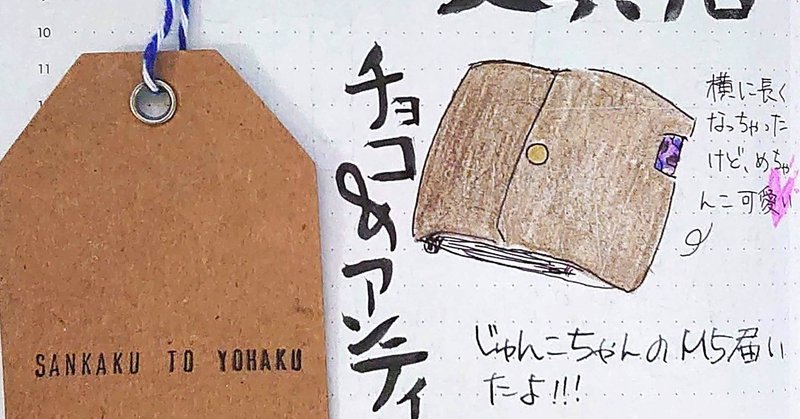 10
11
チョコ&アンティ
横に長く
なっちゃった
けど、めちゃ
んこ可愛い
SANKAKU TO YOHAKU
じゅんこちゃんのM5届い
たよ!!!